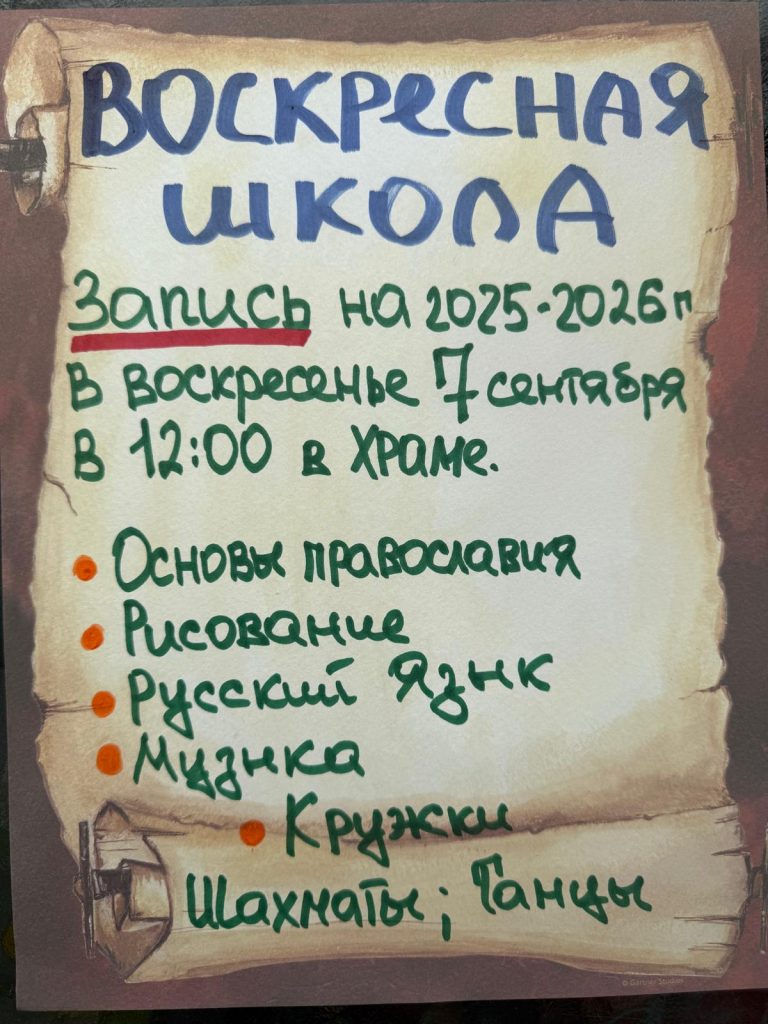 ВОСКРЕСНАЯ
ШКОЛА
Запись на 2025-2026 г
В воскресенье 7 сентября
В 12:00 в Храме.
• Основы православия
• Рисование
• Русский Язык
• Музыка
• Кружки
Шахматы; Танцы
© Gartner Studios